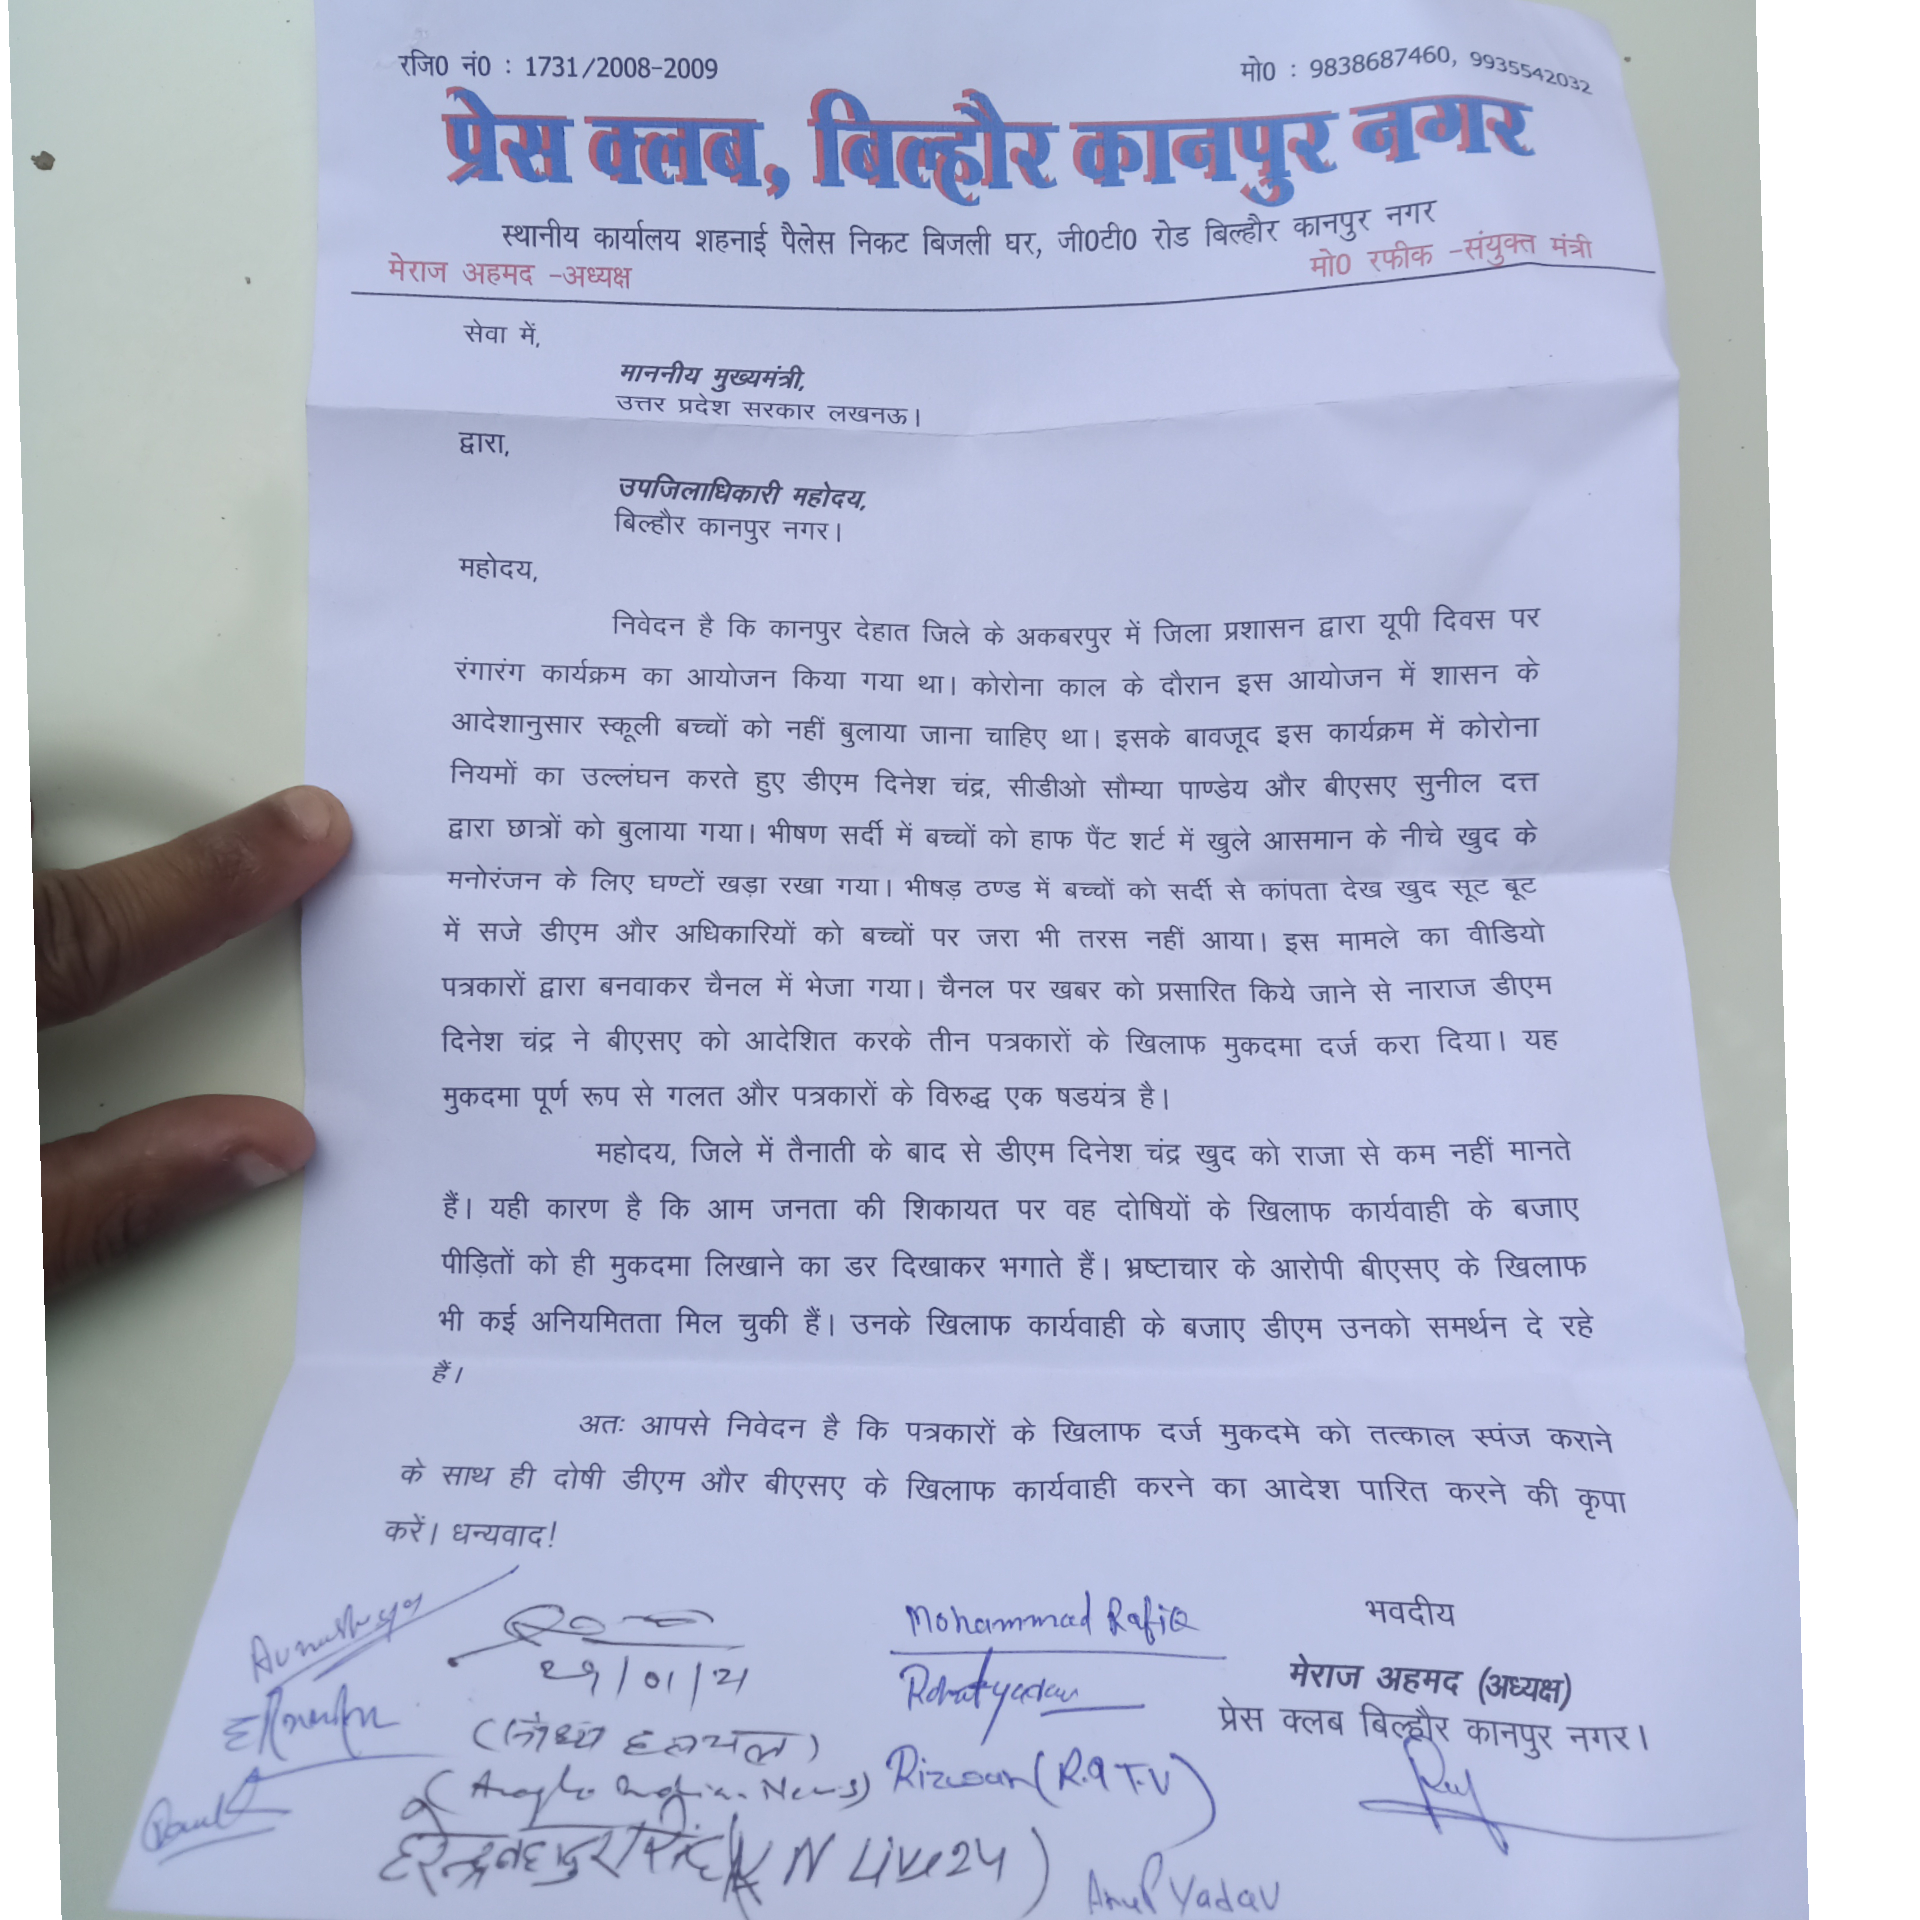 रजि0 नं0 : 1731/2008-2009
मो0 : 9838687460, 9935542032
प्रेस क्लब, बिल्हौर कानपुर नगर
स्थानीय कार्यालय शहनाई पैलेस निकट बिजली घर, जी0टी0 रोड बिल्हौर कानपुर नगर
मेराज अहमद -अध्यक्ष
मो0 रफीक -संयुक्त मंत्री
सेवा में,
माननीय मुख्यमंत्री,
उत्तर प्रदेश सरकार लखनऊ।
द्वारा,
उपजिलाधिकारी महोदय,
बिल्हौर कानपुर नगर।
महोदय,
निवेदन है कि कानपुर देहात जिले के अकबरपुर में जिला प्रशासन द्वारा यूपी दिवस पर
रंगारंग कार्यक्रम का आयोजन किया गया था। कोरोना काल के दौरान इस आयोजन में शासन के
आदेशानुसार स्कूली बच्चों को नहीं बुलाया जाना चाहिए था। इसके बावजूद इस कार्यक्रम में कोरोना
नियमों का उल्लंघन करते हुए डीएम दिनेश चंद्र, सीडीओ सौम्या पाण्डेय और बीएसए सुनील दत्त
द्वारा छात्रों को बुलाया गया। भीषण सर्दी में बच्चों को हाफ पैंट शर्ट में खुले आसमान के नीचे खुद के
मनोरंजन के लिए घण्टों खड़ा रखा गया। भीषड़ ठण्ड में बच्चों को सर्दी से कांपता देख खुद सूट बूट
में सजे डीएम और अधिकारियों को बच्चों पर जरा भी तरस नहीं आया। इस मामले का वीडियो
पत्रकारों द्वारा बनवाकर चैनल में भेजा गया। चैनल पर खबर को प्रसारित किये जाने से नाराज डीएम
दिनेश चंद्र ने बीएसए को आदेशित करके तीन पत्रकारों के खिलाफ मुकदमा दर्ज करा दिया। यह
मुकदमा पूर्ण रूप से गलत और पत्रकारों के विरुद्ध एक षडयंत्र है।
महोदय, जिले में तैनाती के बाद से डीएम दिनेश चंद्र खुद को राजा से कम नहीं मानते
हैं। यही कारण है कि आम जनता की शिकायत पर वह दोषियों के खिलाफ कार्यवाही के बजाए
पीड़ितों को ही मुकदमा लिखाने का डर दिखाकर भगाते हैं। भ्रष्टाचार के आरोपी बीएसए के खिलाफ
भी कई अनियमितता मिल चुकी हैं। उनके खिलाफ कार्यवाही के बजाए डीएम उनको समर्थन दे रहे
हैं।
अतः आपसे निवेदन है कि पत्रकारों के खिलाफ दर्ज मुकदमे को तत्काल स्पंज कराने
के साथ ही दोषी डीएम और बीएसए के खिलाफ कार्यवाही करने का आदेश पारित करने की कृपा
करें। धन्यवाद!
भवदीय
Mohammad Rafiq
29/01/21
मेराज अहमद (अध्यक्ष)
प्रेस क्लब बिल्हौर कानपुर नगर।
Rizwan (R.9 T.V)
(Anglo Indian News)
हरेन्द्र बहादुर सिंह (K N Live24)
Anup Yadav